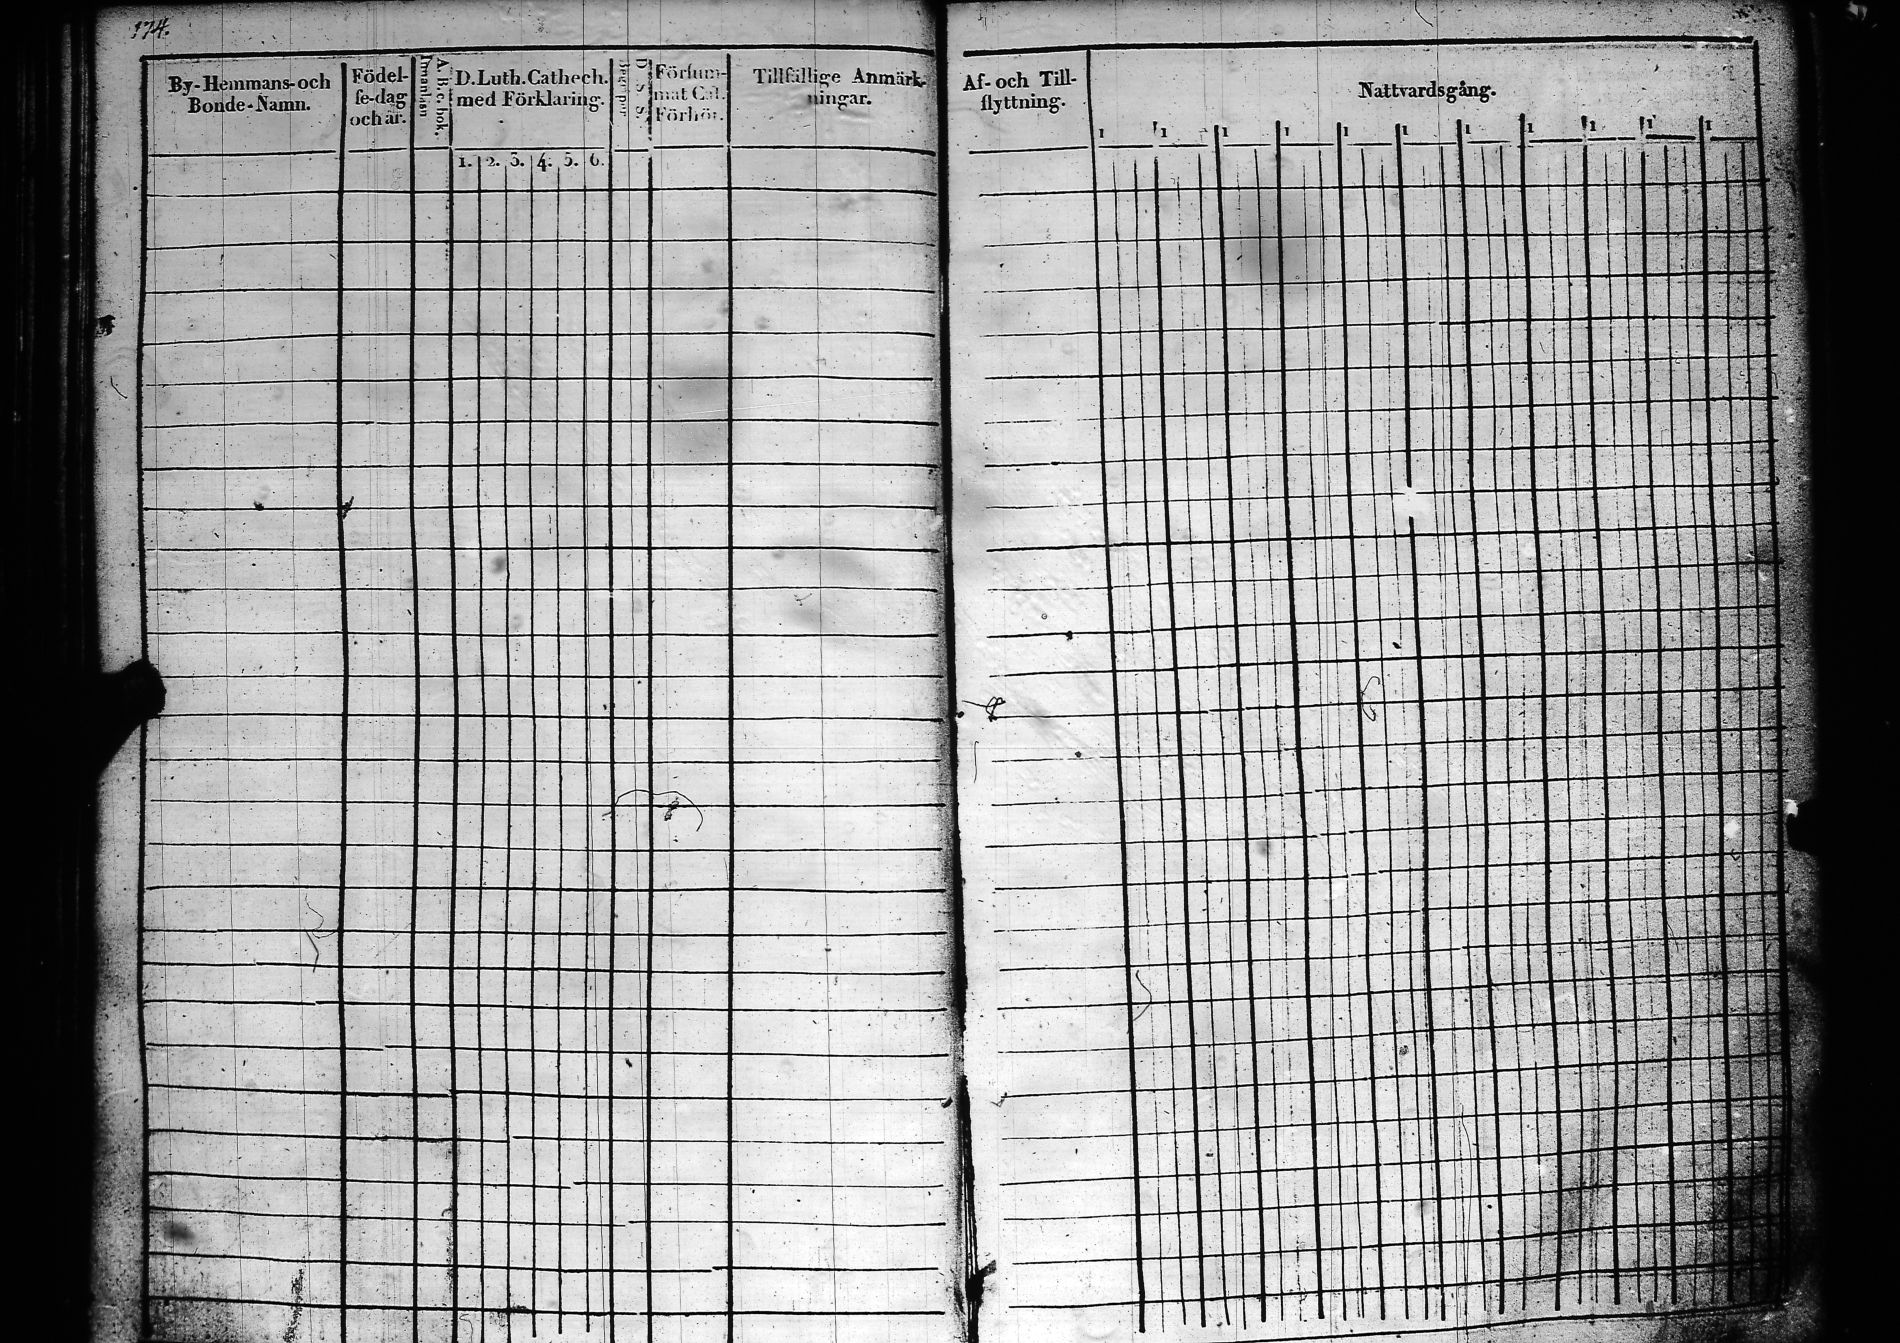 174.
By-Hemmans-och
Bonde-Namn.
Födel-
se-dag
och år.
A. B. c bok.
Innanläsn
D. Luth. Cathech.
med Förklaring.
1. 2. 3. 4. 5. 6.
D. S. S.
Begrepp
Försum-
mat Cat.
Förhör.
Tillfällige Anmärk-
ningar.
Af- och Till-
flyttning.
Nattvardsgång.
1 1 1 1 1 1 1 1 1 1 1